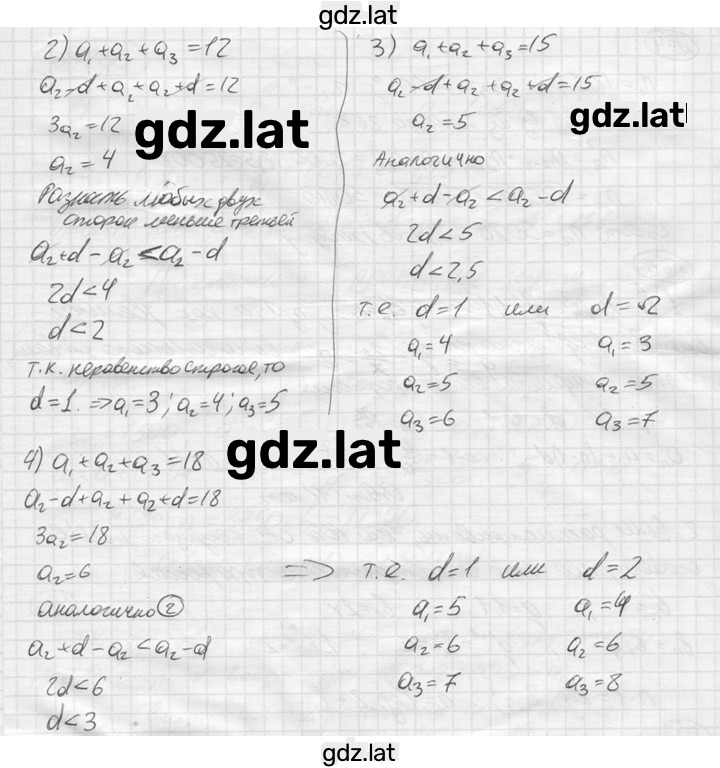 gdz.lat
2) a₁+a₂+a₃=12
a₂-d+a₂+a₂+d=12
3a₂=12
a₂=4
Разность любых двух
сторон меньше третьей
a₂+d-a₂<a₂-d
2d<4
d<2
т.к. неравенство строгое, то
d=1. ⇒ a₁=3; a₂=4; a₃=5
3) a₁+a₂+a₃=15
a₂-d+a₂+a₂+d=15
a₂=5
Аналогично
a₂+d-a₂<a₂-d
2d<5
d<2,5
т.е. d=1 или d=2
a₁=4 a₁=3
a₂=5 a₂=5
a₃=6 a₃=7
gdz.lat
gdz.lat
4) a₁+a₂+a₃=18
a₂-d+a₂+a₂+d=18
3a₂=18
a₂=6
аналогично ②
a₂+d-a₂<a₂-d
2d<6
d<3
⇒ т.е. d=1 или d=2
a₁=5 a₁=4
a₂=6 a₂=6
a₃=7 a₃=8
gdz.lat
gdz.lat